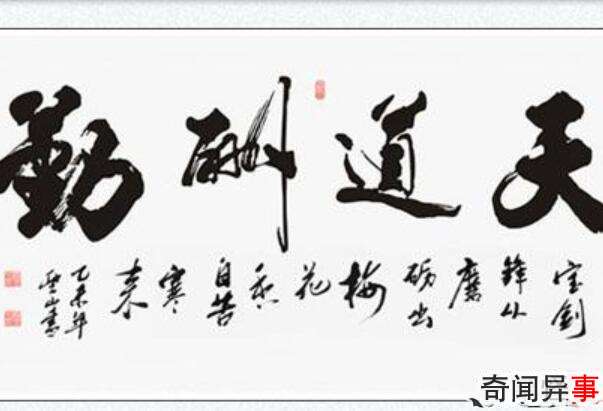 天道酬勤
宝剑
锋从
磨
砺出
梅
花
香
自苦
寒
来
乙未年
奇闻异事